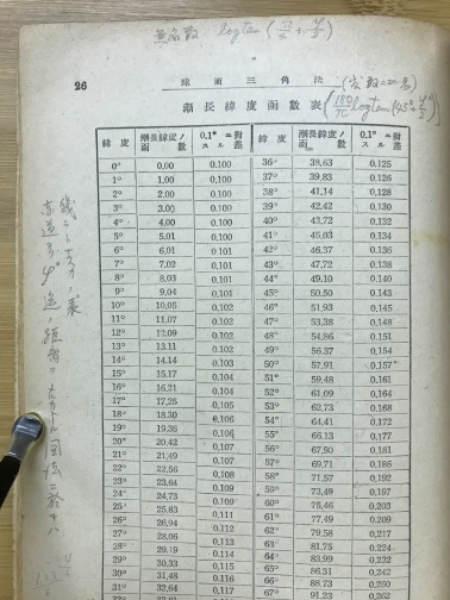 無名数 log tan (π/4 + φ/2)
26
球面三角法
漸長緯度函数表 (180/π log tan (45° + φ°/2))
緯度 漸長緯度ノ函数 0.1°ニ対スル差 緯度 漸長緯度ノ函数 0.1°ニ対スル差
0° 0.00 0.100 36° 38.63 0.125
1° 1.00 0.100 37° 39.83 0.126
2° 2.00 0.100 38° 41.14 0.128
3° 3.00 0.100 39° 42.42 0.130
4° 4.00 0.100 40° 43.72 0.132
5° 5.01 0.100 41° 45.03 0.134
6° 6.01 0.101 42° 46.37 0.136
7° 7.02 0.101 43° 47.72 0.138
8° 8.03 0.101 44° 49.10 0.140
9° 9.04 0.101 45° 50.50 0.143
10° 10.05 0.102 46° 51.93 0.145
11° 11.07 0.102 47° 53.38 0.148
12° 12.09 0.102 48° 54.86 0.151
13° 13.11 0.102 49° 56.37 0.154
14° 14.14 0.103 50° 57.91 0.157
15° 15.17 0.103 51° 59.48 0.161
16° 16.21 0.104 52° 61.09 0.164
17° 17.25 0.104 53° 62.73 0.168
18° 18.30 0.105 54° 64.41 0.172
19° 19.36 0.106 55° 66.13 0.177
20° 20.42 0.106 56° 67.90 0.181
21° 21.49 0.107 57° 69.71 0.186
22° 22.56 0.107 58° 71.57 0.192
23° 23.64 0.108 59° 73.49 0.197
24° 24.73 0.109 60° 75.46 0.203
25° 25.83 0.109 61° 77.49 0.209
26° 26.94 0.111 62° 79.58 0.217
27° 28.06 0.112 63° 81.75 0.224
28° 29.19 0.113 64° 83.99 0.232
29° 30.33 0.114 65° 86.31 0.242
30° 31.48 0.115 66° 88.73 0.250
31° 32.64 0.116 67° 91.23 0.262